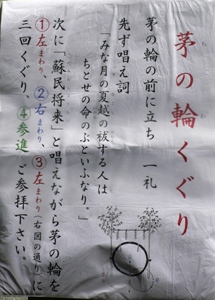 茅の輪くぐり
茅の輪の前に立ち 一礼
先ず唱え詞
「みな月の夏越の祓する人は
ちとせの命のぶといふなり。」
次に「蘇民将来」と唱えながら茅の輪を
①左まわり、②右まわり、③左まわり(右図の通り)に
三回くぐり、④参進 ご参拝下さい。